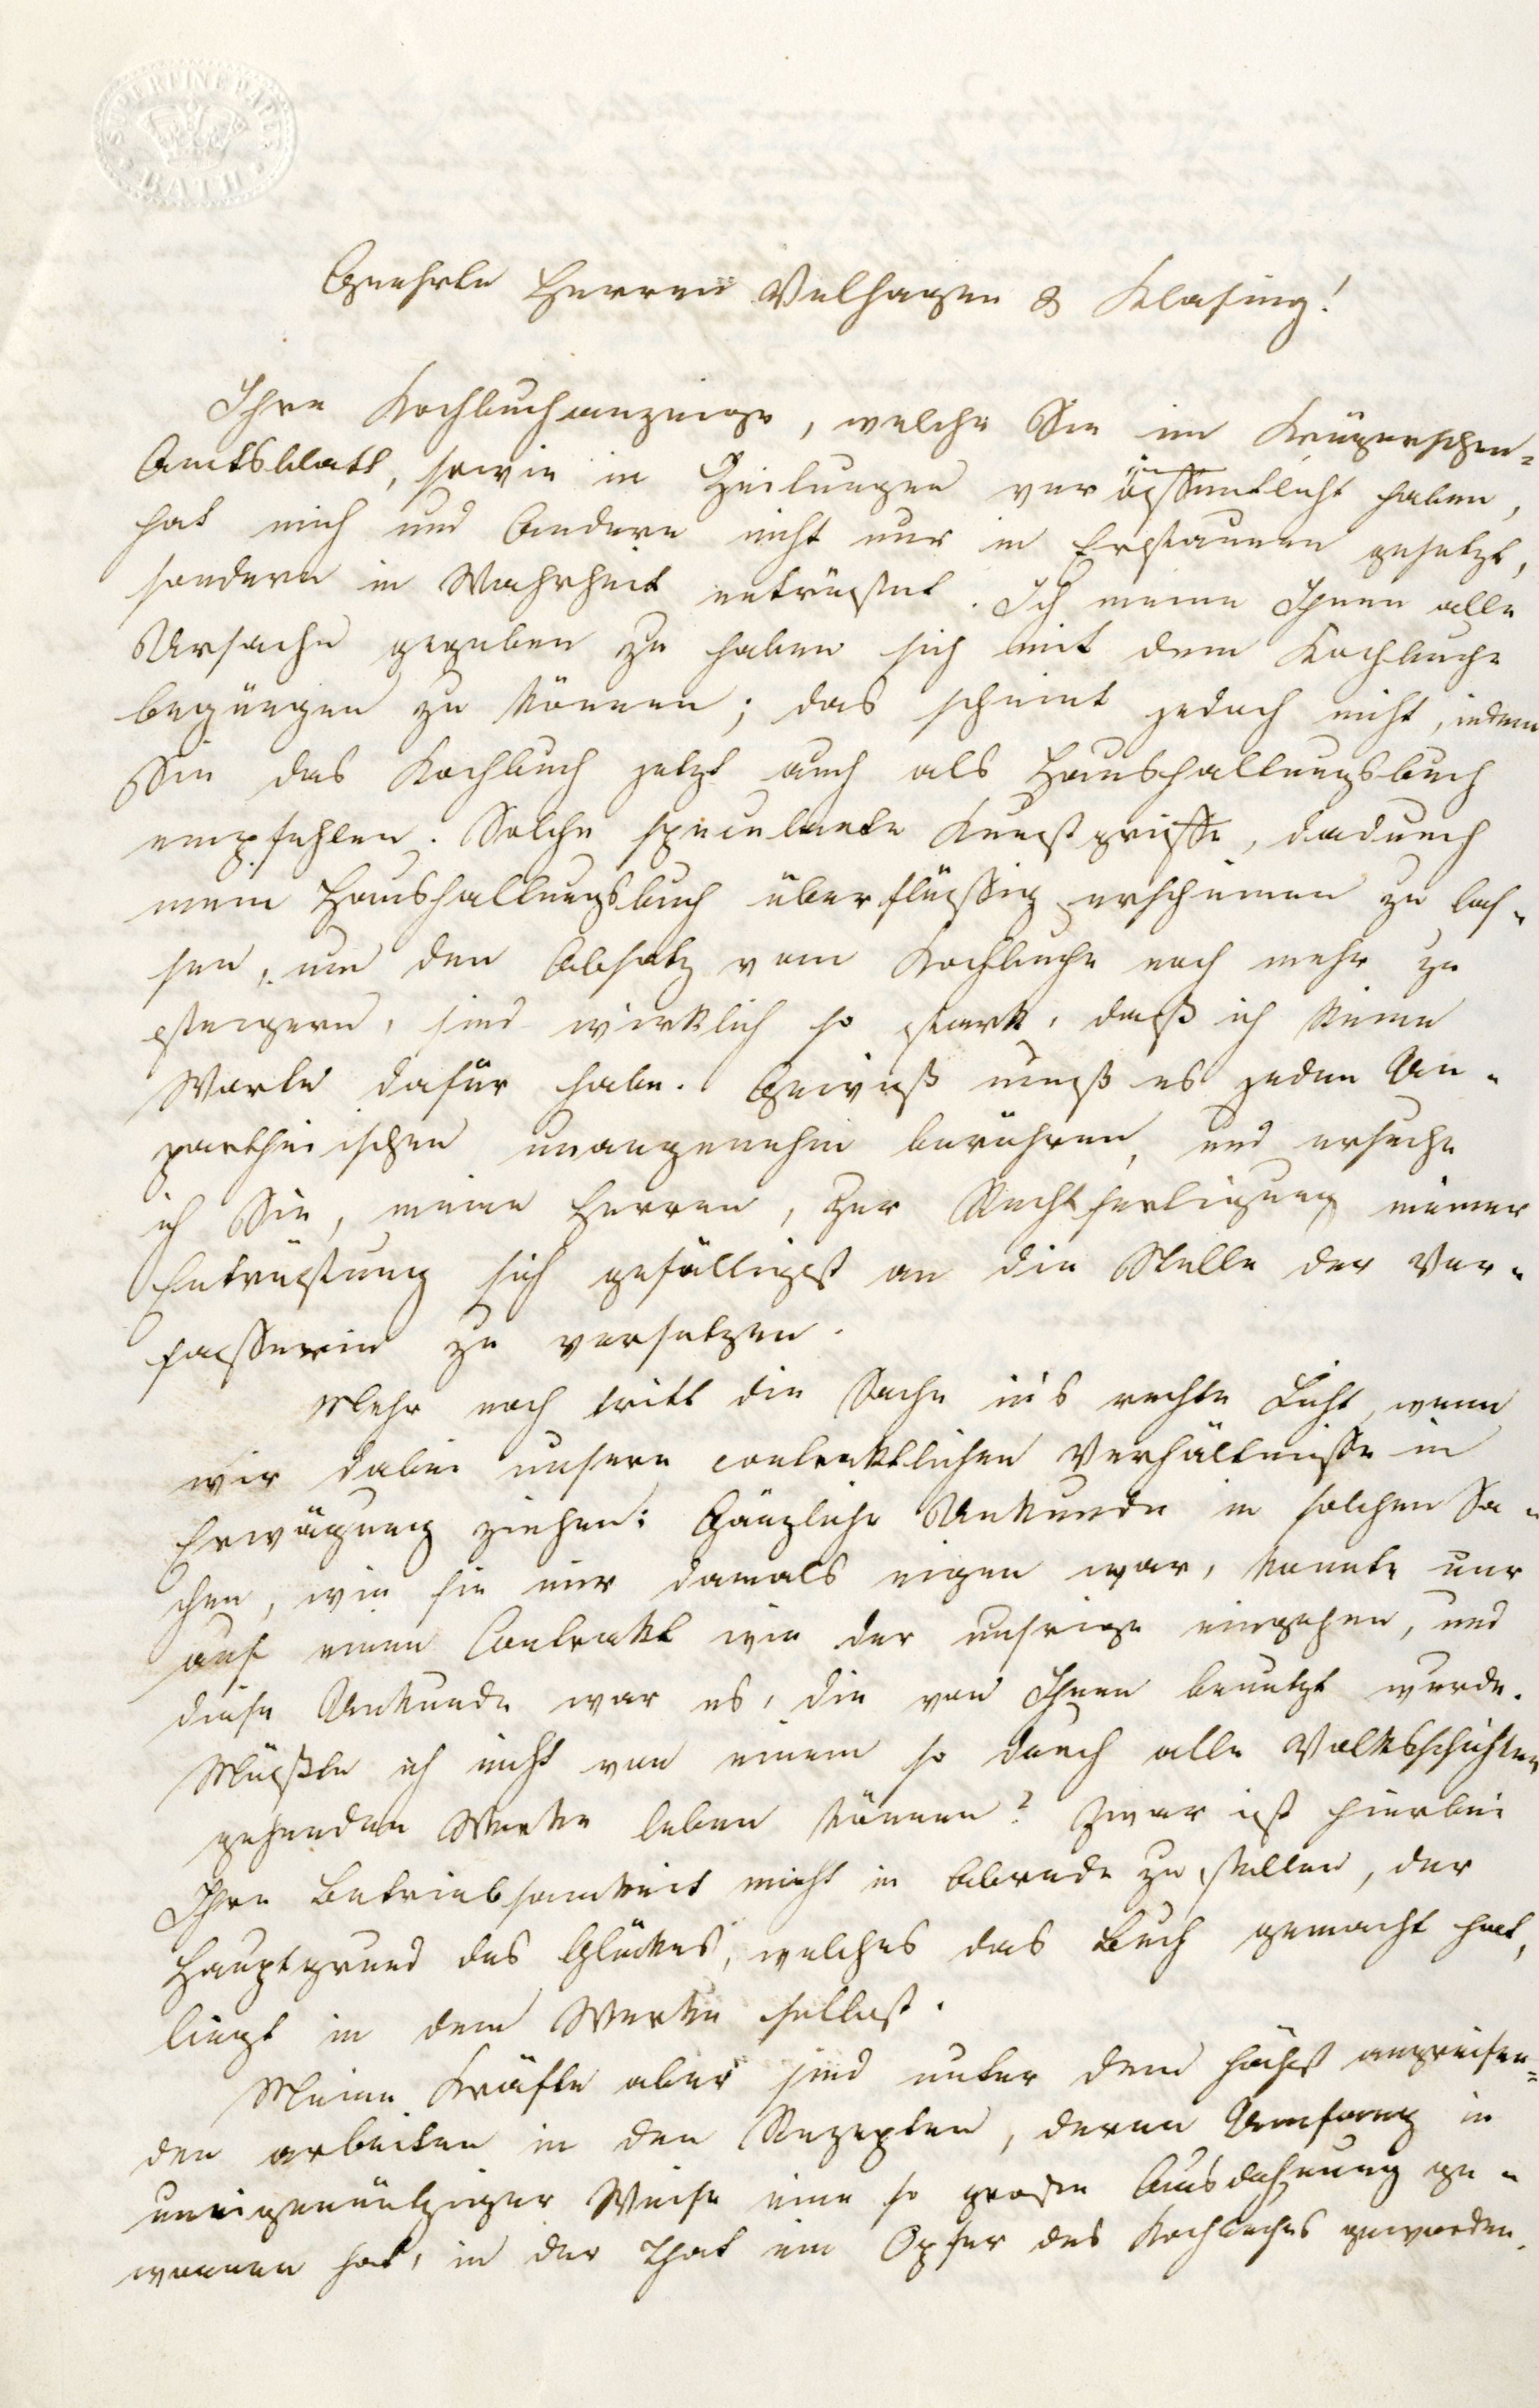 SUPERFINE PAPER
BATH
Geehrte Herren Velhagen & Klasing!
Ihre Kochbuchanzeige, welche Sie im Krügerschen=
Amtsblatt, sowie in Zeitungen veröffentlicht haben,
hat mich und Andere nicht nur in Erstaunen gesetzt,
sondern in Wahrheit entrüstet. Ich meine Ihnen alle
Ursache gegeben zu haben sich mit dem Kochbuche
begnügen zu können; das scheint jedoch nicht, indem
Sie das Kochbuch jetzt auch als Haushaltungsbuch
empfehlen. Solche speculante Kunstgriffe, dadurch
mein Haushaltungsbuch überflüssig erscheinen zu las-
sen, um den Absatz vom Kochbuche noch mehr zu
steigern, sind wirklich so stark, daß ich keine
Worte dafür habe. Gewiß muß es jeden Un-
partheiischen unangenehm berühren, und ersuche
ich Sie, meine Herren, zur Rechtfertigung meiner
Entrüstung sich gefälligst an die Stelle der Ver-
fasserin zu versetzen.
Mehr noch tritt die Sache in's rechte Licht, wenn
wir dabei unsere contraktlichen Verhältnisse in
Erwägung ziehen: Gänzliche Unkunde in solchen Sa-
chen, wie sie mir damals eigen war, konnte nur
auf einen Contrakt wie der unsrige eingehen, und
diese Unkunde war es, die von Ihnen benutzt wurde.
Müßte ich nicht von einem so durch alle Volksschichten
gehenden Werke leben können? Zwar ist hierbei
Ihre Betriebsamkeit nicht in Abrede zu stellen, der
Hauptgrund des Glückes, welches das Buch gemacht hat,
liegt in dem Werke selbst.
Meine Kräfte aber sind unter dem höchst angreifen=
den arbeiten in den Rezepten, deren Umfang in
uneigennütziger Weise eine so große Ausdehnung ge-
wonnen hat, in der That ein Opfer des Kochbuches geworden.